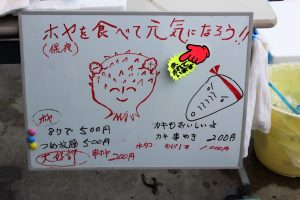 ホヤを食べて元気になろう!!
(保夜)
ホヤ
8ケで 500円
つめ放題 500円
大好評 串ホヤ 200円
カキもおいしいよ
カキ串やき 200円
水タコ 1,000円